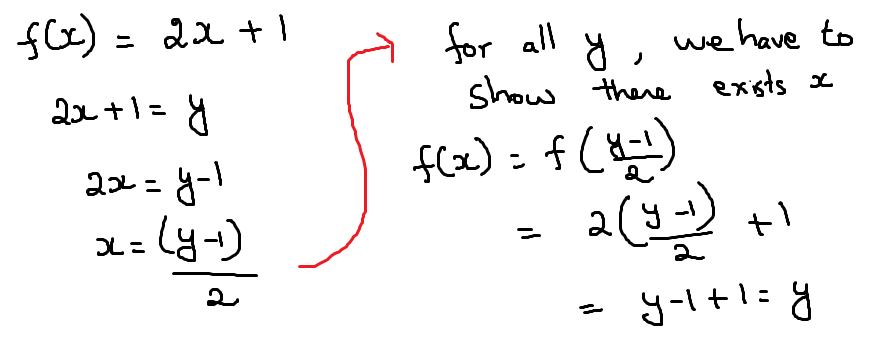 f(x) = 2x + 1
2x + 1 = y
2x = y - 1
x = (y - 1)
2
for all y, we have to
show there exists x
f(x) = f(y-1/2)
= 2(y-1/2) + 1
= y - 1 + 1 = y